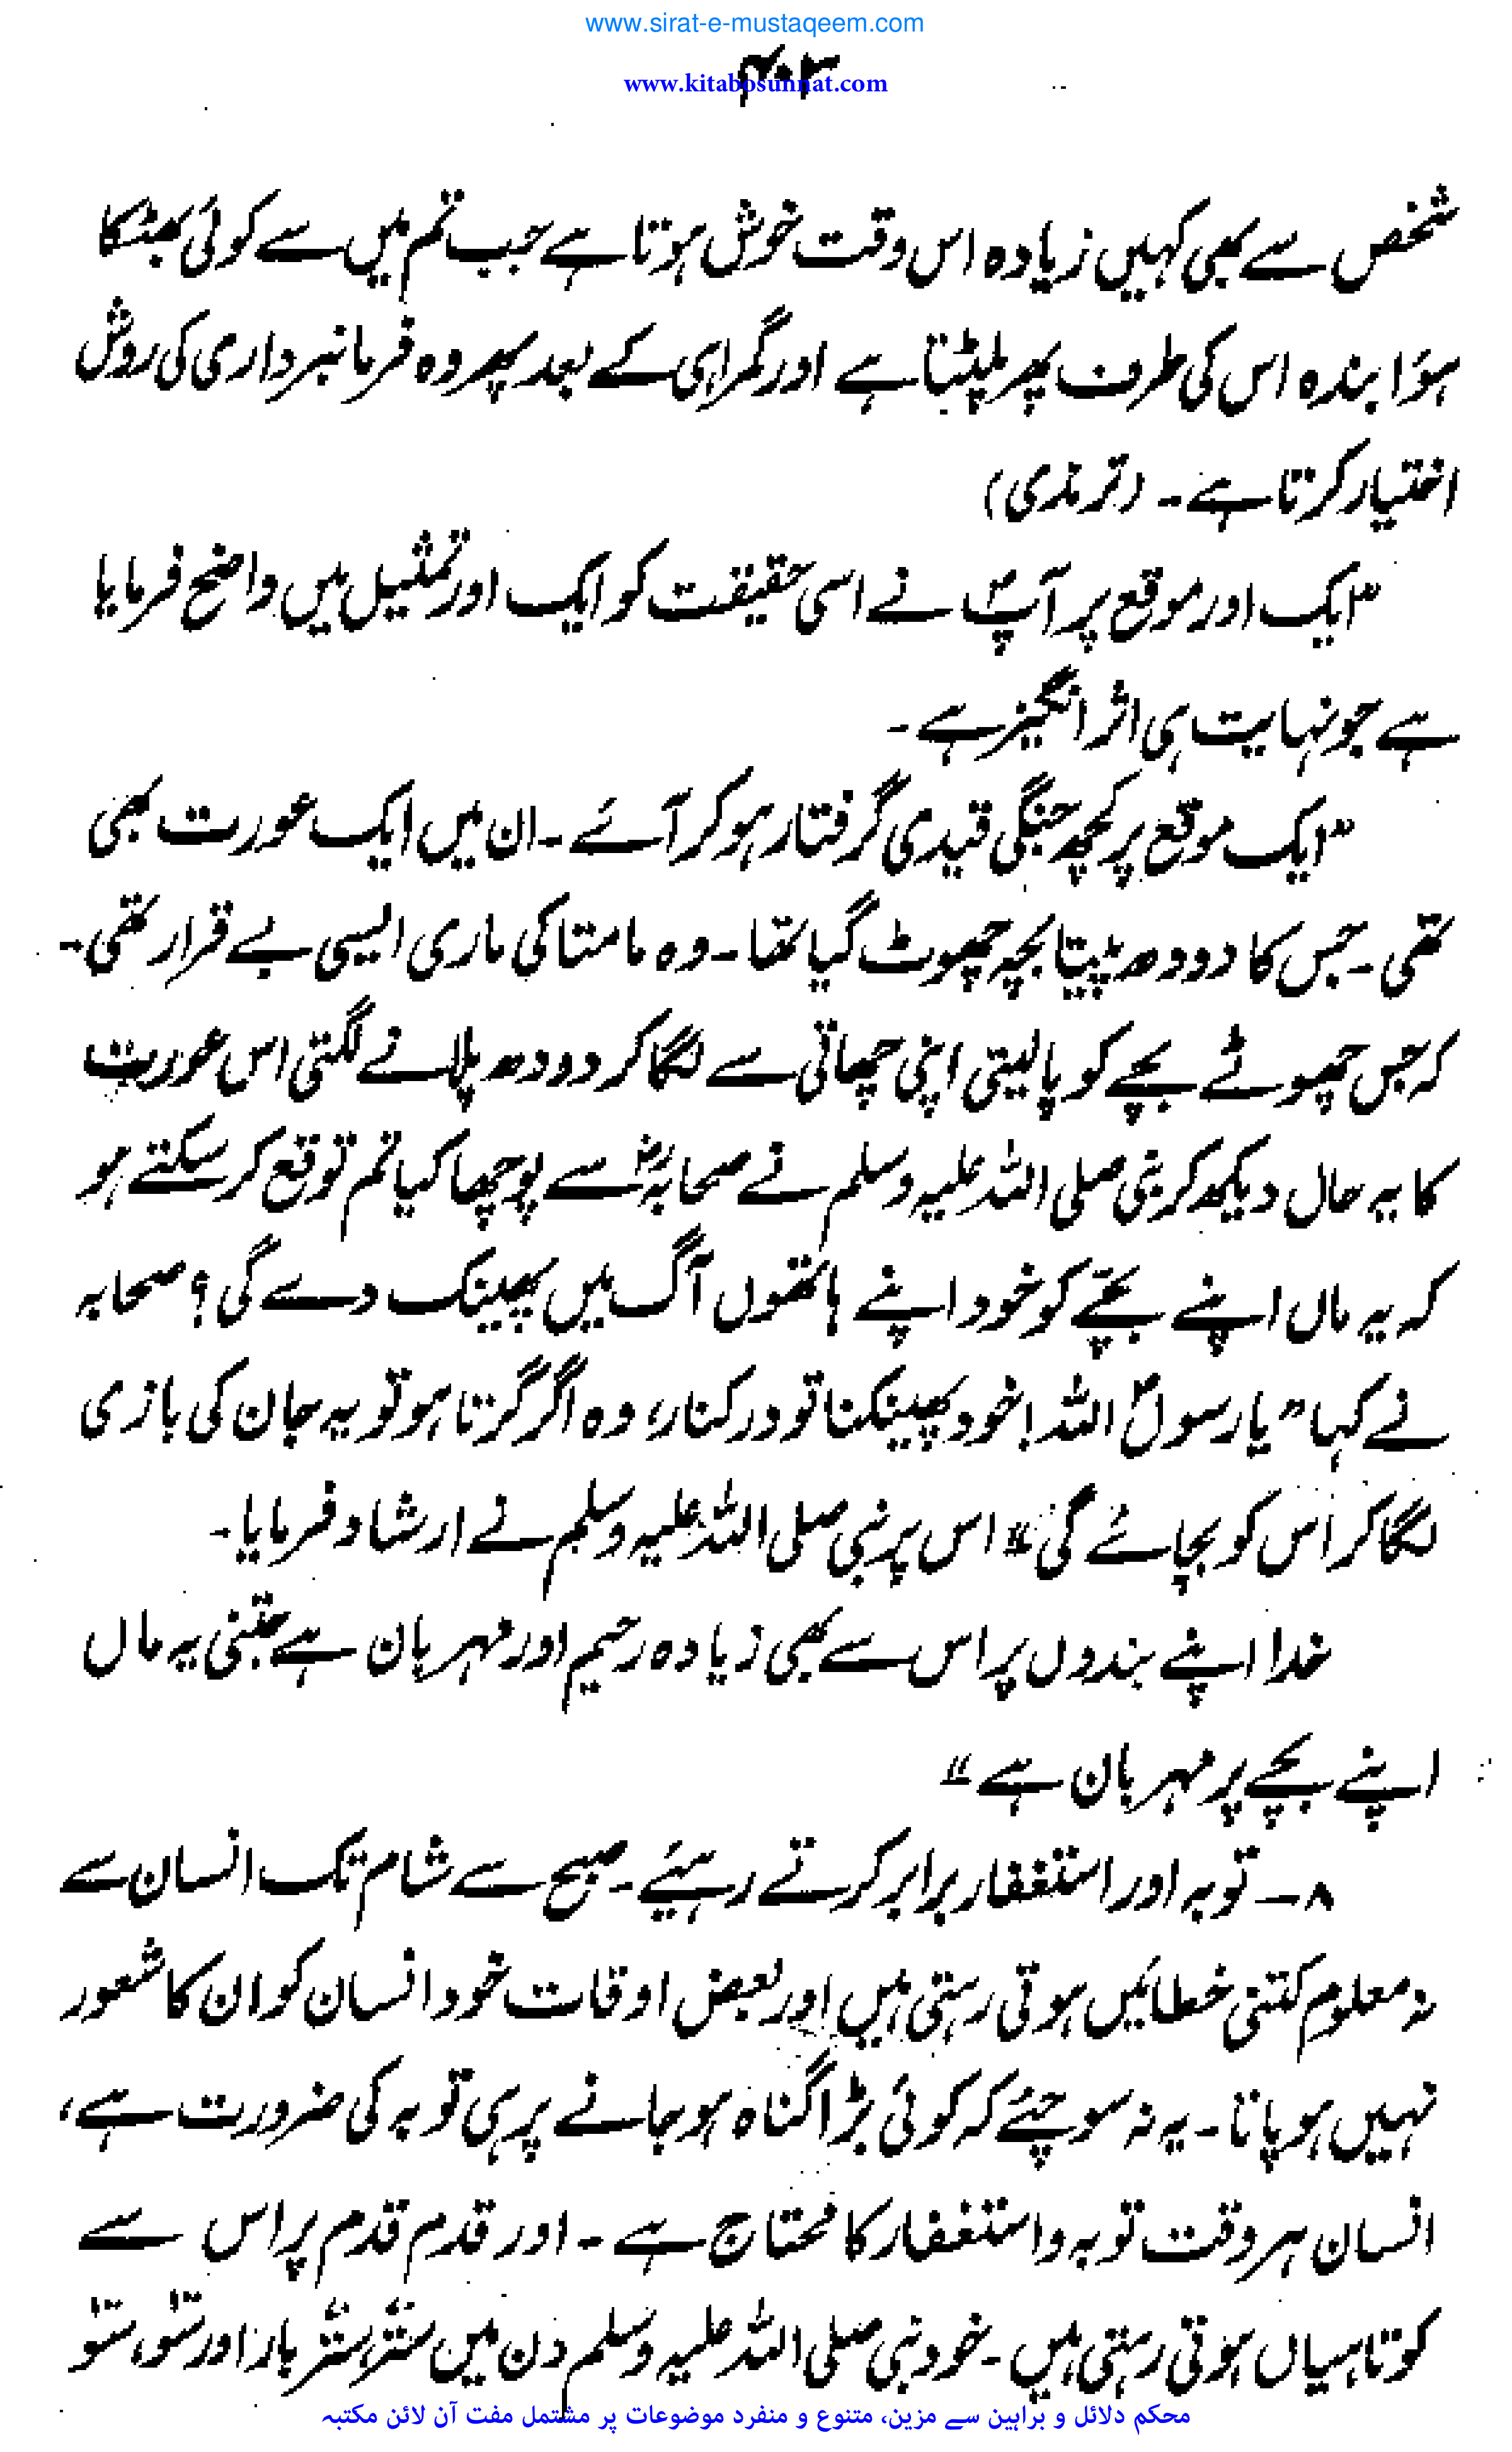 www.sirat-e-mustaqeem.com
www.kitabosunnat.com
شخص سے بھی کہیں زیادہ اس وقت خوش ہوتا ہے جب تم میں سے کوئی بھٹکا
ہؤا بندہ اس کی طرف پھر پلٹتا ہے اور گمراہی کے بعد پھر وہ فرمانبرداری کی روش
اختیار کرتا ہے۔ (ترمذی)
"ایک اور موقع پر آپؐ نے اسی حقیقت کو ایک اور تمثیل میں واضح فرمایا
ہے جو نہایت ہی اثر انگیز ہے۔
"ایک موقع پر کچھ جنگی قیدی گرفتار ہو کر آئے۔ ان میں ایک عورت بھی
تھی۔ جس کا دودھ پیتا بچہ چھوٹ گیا تھا۔ وہ مامتا کی ماری ایسی بے قرار تھی۔
کہ جس چھوٹے بچے کو پا لیتی اپنی چھاتی سے لگا کر دودھ پلانے لگتی اس عورت
کا یہ حال دیکھ کر نبی صلی اللہ علیہ وسلم نے صحابہؓ سے پوچھا کیا تم توقع کر سکتے ہو
کہ یہ ماں اپنے بچّے کو خود اپنے ہاتھوں آگ میں پھینک دے گی؟ صحابہ
نے کہا "یا رسولؐ اللہ! خود پھینکنا تو درکنار، وہ اگر گرتا ہو تو یہ جان کی بازی
لگا کر اس کو بچائے گی" اس پر نبی صلی اللہ علیہ وسلم نے ارشاد فرمایا۔
خدا اپنے بندوں پر اس سے بھی زیادہ رحیم اور مہربان ہے جتنی یہ ماں
اپنے بچے پر مہربان ہے"
۸۔ توبہ اور استغفار برابر کرتے رہیئے۔ صبح سے شام تک انسان سے
نہ معلوم کتنی خطائیں ہوتی رہتی ہیں اور بعض اوقات خود انسان کو ان کا شعور
نہیں ہو پاتا۔ یہ نہ سوچئے کہ کوئی بڑا گناہ ہو جانے پر ہی توبہ کی ضرورت ہے،
انسان ہر وقت توبہ و استغفار کا محتاج ہے۔ اور قدم قدم پر اس سے
کوتاہیاں ہوتی رہتی ہیں۔ خود نبی صلی اللہ علیہ وسلم دن میں ستر ستر بار اور سو، سو
محکم دلائل و براہین سے مزین، متنوع و منفرد موضوعات پر مشتمل مفت آن لائن مکتبہ